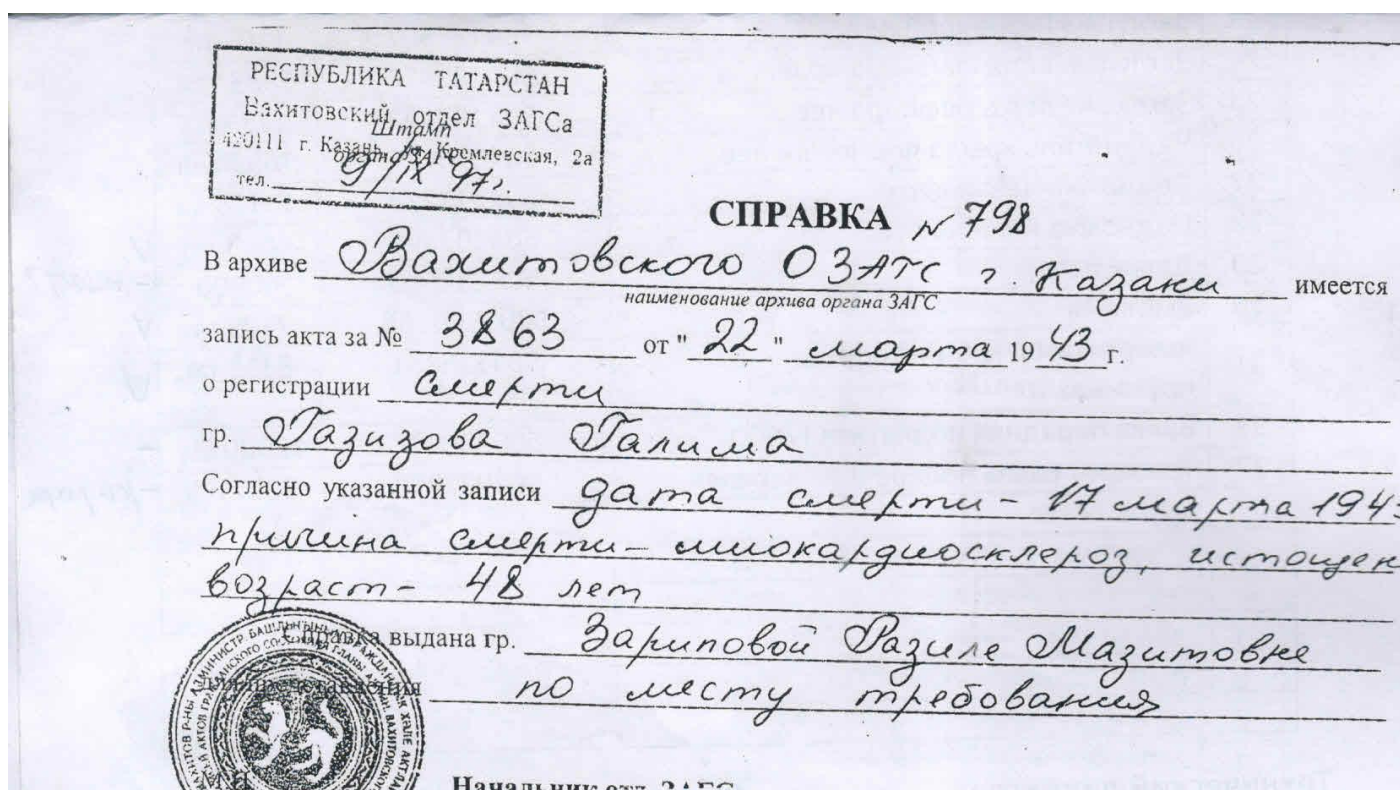 РЕСПУБЛИКА ТАТАРСТАН
Вахитовский отдел ЗАГСа
Штамп
420111 г. Казань, ул. Кремлевская, 2а
органа ЗАГС
тел. 9/IX 97г.
СПРАВКА N 798
В архиве Вахитовского ОЗАГС г. Казани имеется
наименование архива органа ЗАГС
запись акта за № 3863 от "22" марта 1943 г.
о регистрации смерти
гр. Газизова Галима
Согласно указанной записи дата смерти - 17 марта 1943
причина смерти - миокардиосклероз, истощен
возраст - 48 лет
Справка выдана гр. Зариповой Разиле Мазитовне
по месту требования
М.П.
Начальник отд. ЗАГС